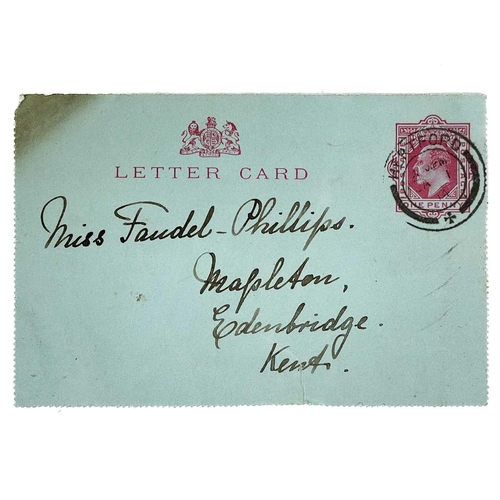 LETTER CARD
HERTFORD
ONE PENNY
Miss Faudel-Phillips.
Mapleton,
Edenbridge.
Kent.